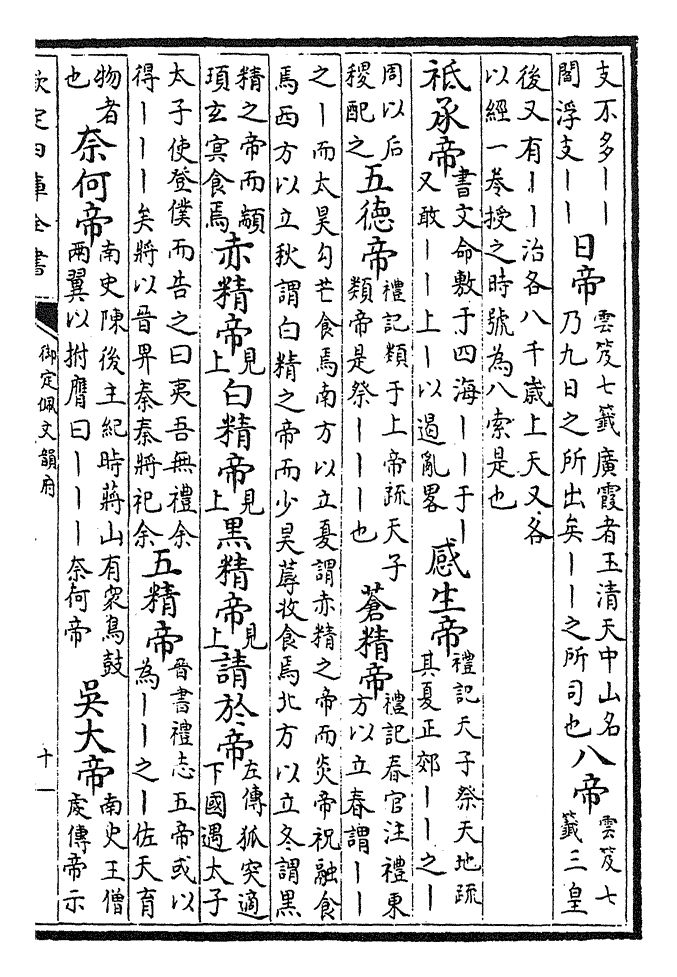 支不多〡〡閻浮支〡〡 日帝 雲笈七籤廣霞者玉清天中山名乃九日之所出矣〡〡之所司也 八帝 雲笈七籤三皇
後又有〡〡治各八千歲上天又各以經一卷授之時號為八索是也
祗承帝 書文命敷于四海〡〡于〡又敢〡〡上〡以遏亂畧 感生帝 禮記天子祭天地疏其夏正郊〡〡之〡
周以后稷配之 五德帝 禮記類于上帝疏天子類帝是祭〡〡〡也 蒼精帝 禮記春官注禮東方以立春謂〡〡
之〡而太昊勾芒食焉南方以立夏謂赤精之帝而炎帝祝融食焉西方以立秋謂白精之帝而少昊蓐收食焉北方以立冬謂黑
精之帝而顓頊玄冥食焉 赤精帝 見上 白精帝 見上 黑精帝 見上 請於帝 左傳狐突適下國遇太子
太子使登僕而告之曰夷吾無禮余得〡〡〡矣將以晉畀秦秦將祀余 五精帝 晉書禮志五帝或以為〡〡之〡佐天育
物者也 奈何帝 南史陳後主紀時蔣山有衆鳥鼓兩翼以拊膺曰〡〡〡奈何帝 吳大帝 南史王僧虔傳帝示
欽定四庫全書
御定佩文韻府
十一